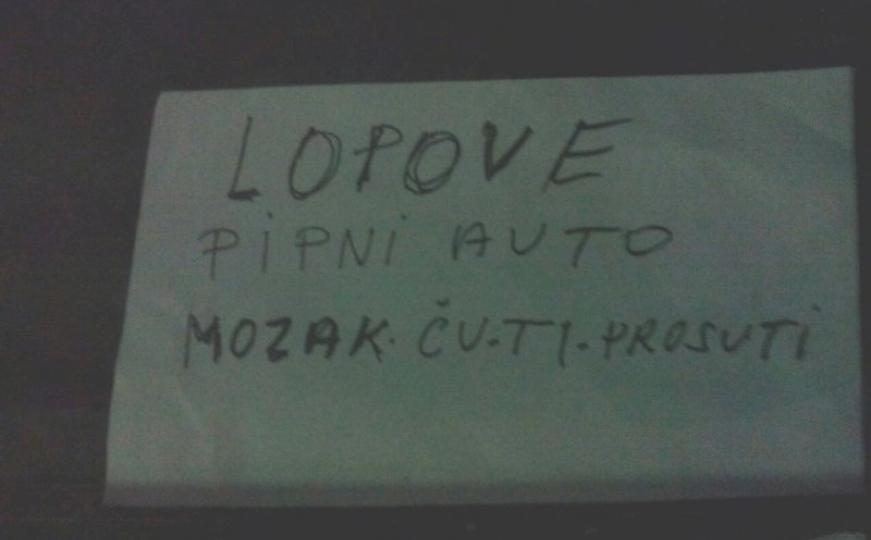 LOPOVE
PiPNi AUTO
MOZAK. ČU.TI.PROSUTi